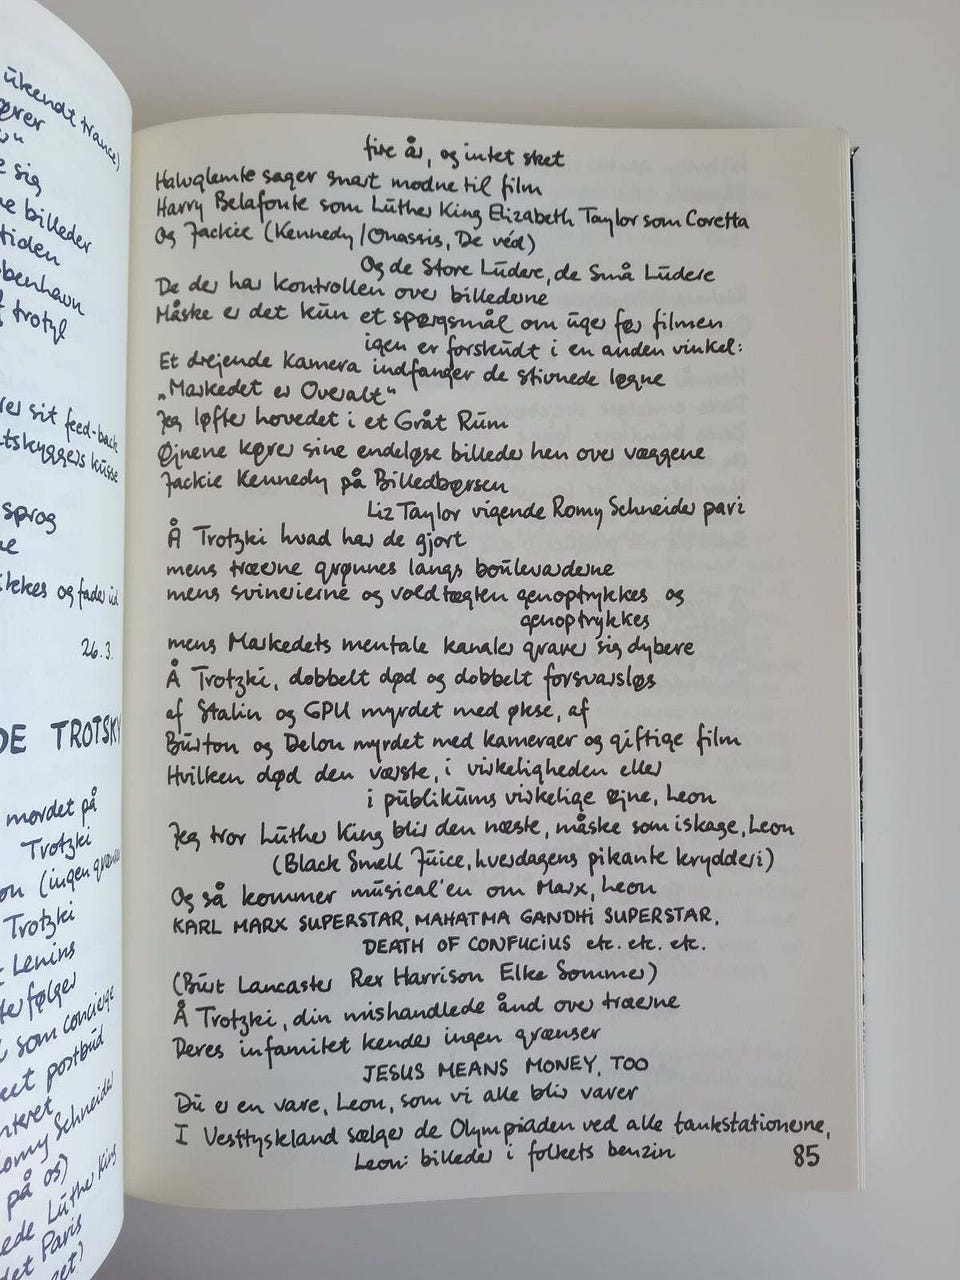 ukendt trance)
sig
billeder
tiden
benhavn
trotyl
sit feed-back
sprog
og fader ud
26.3.
DE TROTSKY
mordet på
Trotzki
Trotzki
Lenins
som concierge
postbud
Schneider
på os)
Luther King
Paris
fire år, og intet sket
Halvglemte sager snart modne til film
Harry Belafonte som Luther King Elizabeth Taylor som Coretta
Og Jackie (Kennedy/Onassis, De véd)
Og de Store Ludere, de Små Ludere
De der har kontrollen over billederne
Måske er det kun et spørgsmål om uger før filmen
igen er forskudt i en anden vinkel:
Et drejende Kamera indfanger de stivnede løgne
„Markedet er Overalt"
Jeg løfter hovedet i et Gråt Rum
Øjnene kører sine endeløse billeder hen over væggene
Jackie Kennedy på Billedbørsen
Liz Taylor vigende Romy Schneider pari
Å Trotzki hvad har de gjort
mens træerne grønnes langs boulevarderne
mens svinerierne og voldtægten genoptrykkes og
genoptrykkes
mens Markedets mentale kanaler graver sig dybere
Å Trotzki, dobbelt død og dobbelt forsvarsløs
af Stalin og GPU myrdet med økse, af
Burton og Delon myrdet med kameraer og giftige film
Hvilken død den værste, i virkeligheden eller
i publikums virkelige øjne, Leon
Jeg tror Luther King blir den næste, måske som iskage, Leon
(Black Smell Juice, hverdagens pikante krydderi)
Og så kommer musical'en om Marx, Leon
KARL MARX SUPERSTAR, MAHATMA GANDHi SUPERSTAR,
DEATH OF CONFUCIUS etc. etc. etc.
(Burt Lancaster Rex Harrison Elke Sommer)
Å Trotzki, din mishandlede ånd over træerne
Deres infamitet kender ingen grænser
JESUS MEANS MONEY, TOO
Du er en vare, Leon, som vi alle blir varer
I Vesttyskland sælger de Olympiaden ved alle tankstationerne,
Leon: billeder i folkets benzin
85